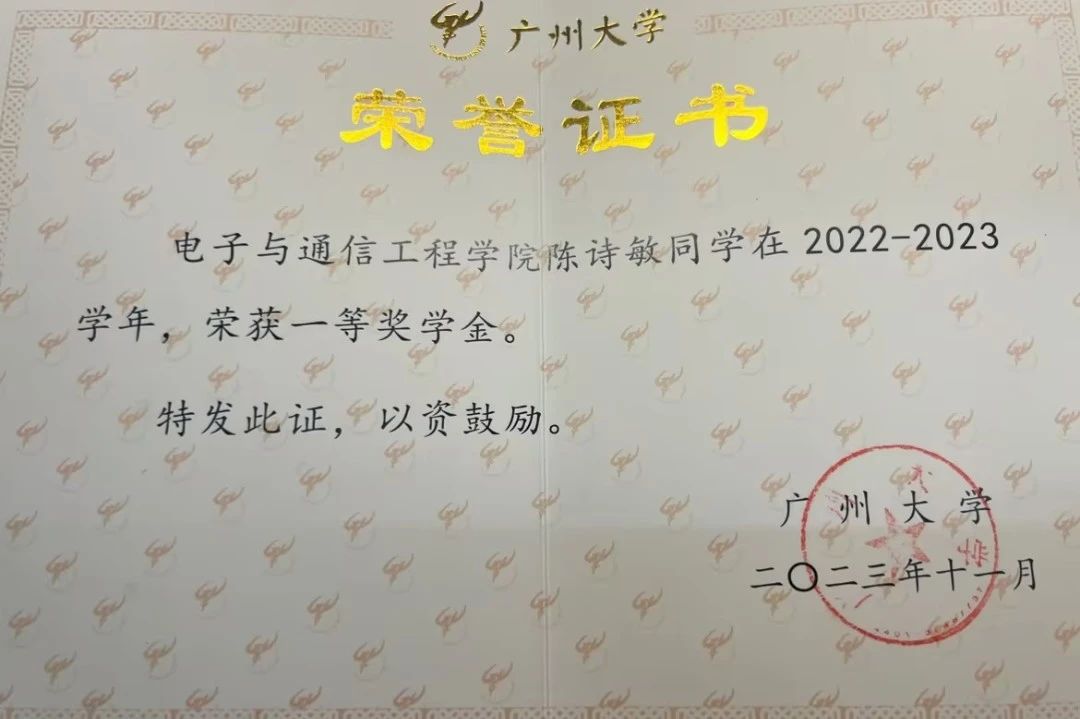 广州大学
荣誉证书
电子与通信工程学院陈诗敏同学在 2022-2023
学年，荣获一等奖学金。
特发此证，以资鼓励。
广州大学
二〇二三年十一月